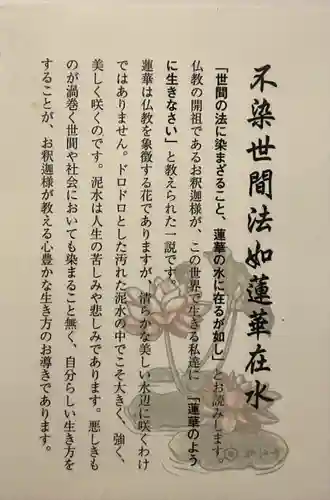 不染世間法如蓮華在水
「世間の法に染まざること、蓮華の水に在るが如し」とお読みします。
仏教の開祖であるお釈迦様が、この世界で生きる私達に「蓮華のよう
に生きなさい」と教えられた一説です。
蓮華は仏教を象徴する花でありますが、清らかな美しい水辺に咲くわけ
ではありません。ドロドロとした汚れた泥水の中でこそ大きく、強く、
美しく咲くのです。泥水は人生の苦しみや悲しみであります。悪しきも
のが渦巻く世間や社会においても染まること無く、自分らしい生き方を
することが、お釈迦様が教える心豊かな生き方のお導きであります。